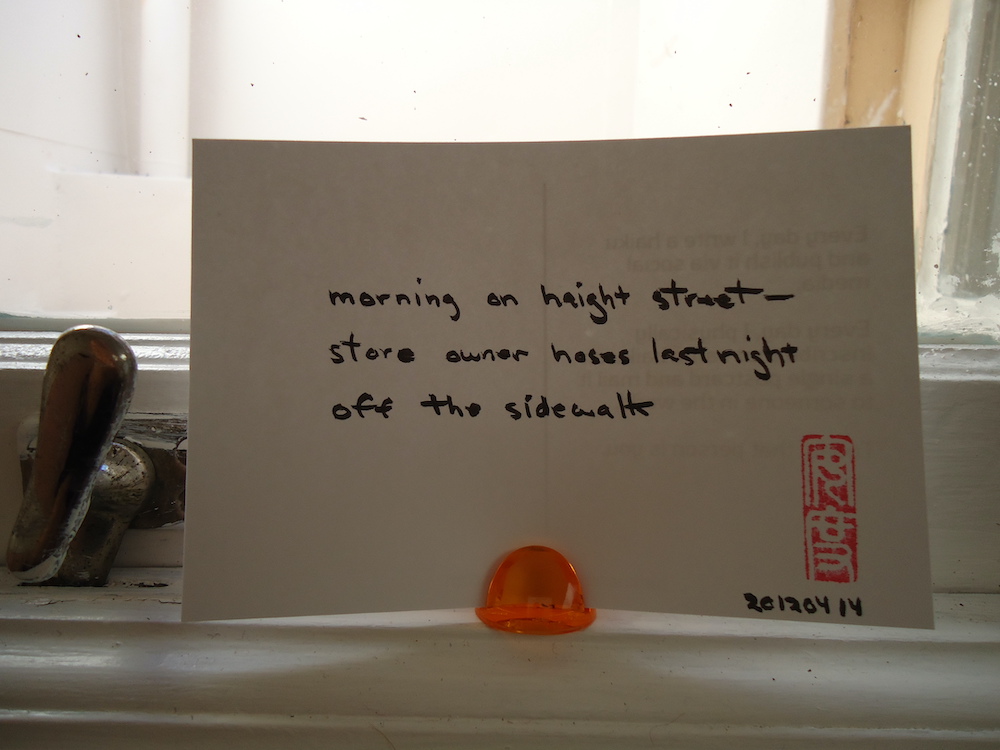 morning on haight street—
store owner hoses last night
off the sidewalk
20120414